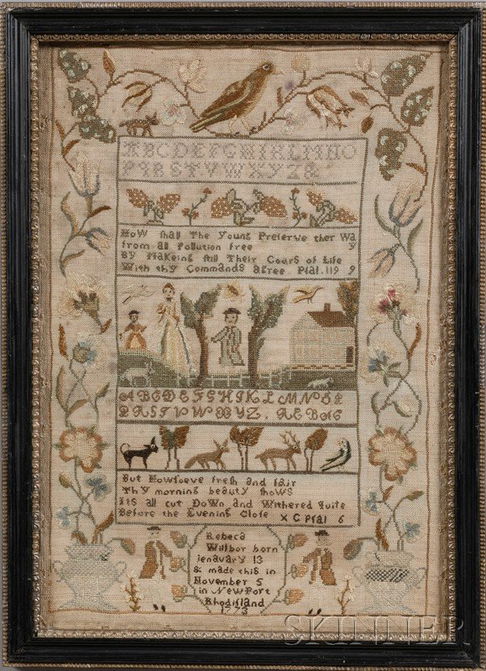 ABCDEFGHIKLMNO
PQRSTVWXYZ&
How shall The young Preserve ther Wa
y
from all Pollution free
By Makeing still Their Cours of Life
With thy Commands agree. Psal. 119 9
ABCDEFGHIKLMNO
PQRSTVWXYZ.
But Howsoeve fresh and fair
Thy morning beauty shows
Its all cut Down and Withered quite
Before the Evening Close X C Psal 6
Rebeca
Wilbor born
ienauary 13
& made this in
November 5
in NewPort
Rhodisland
1773
SKINNER